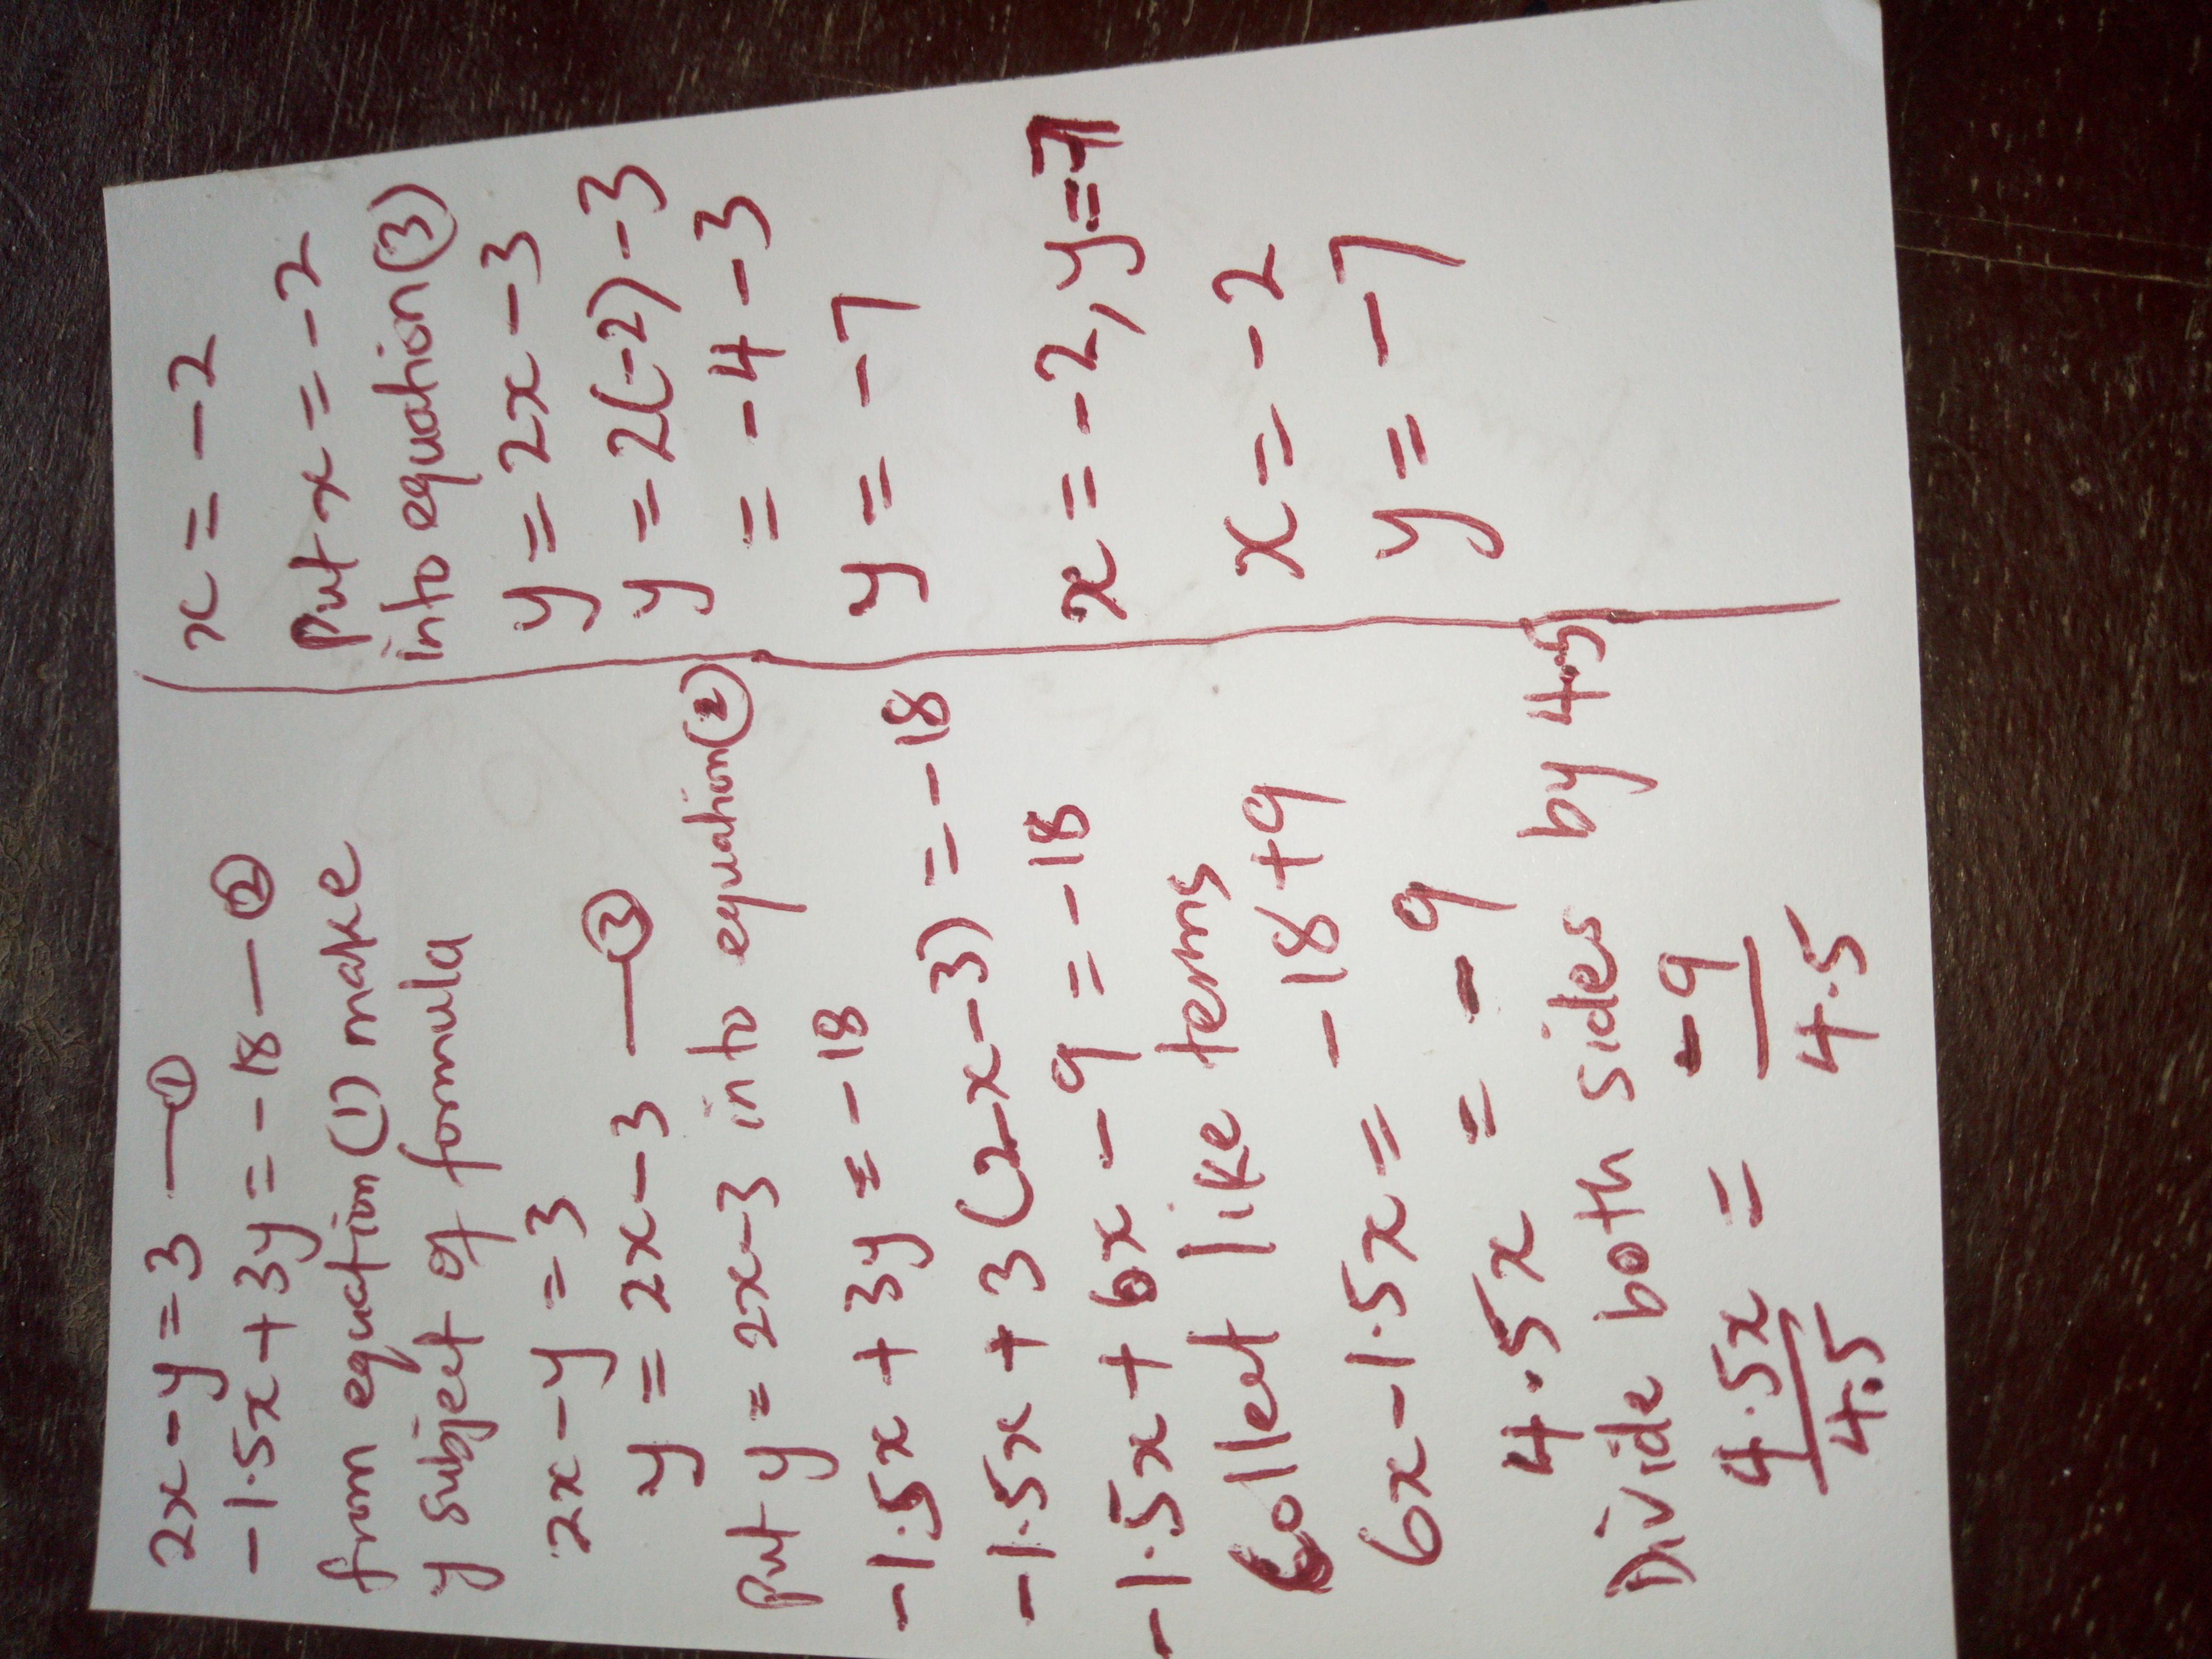 2x-y=3 —①
-1.5x+3y=-18—②
from equation (1) make
y subject of formula
2x-y=3
y=2x-3 —③
Put y=2x-3 into equation(2)
-1.5x+3y=-18
-1.5x+3(2x-3)=-18
-1.5x+6x-9=-18
Collect like terms
6x-1.5x= -18+9
4.5x = -9
Divide both sides by 4.5
4.5x = -9
4.5 4.5
x=-2
Put x=-2
into equation(3)
y=2x-3
y=2(-2)-3
=-4-3
y=-7
x=-2, y=-7
x=-2
y=-7